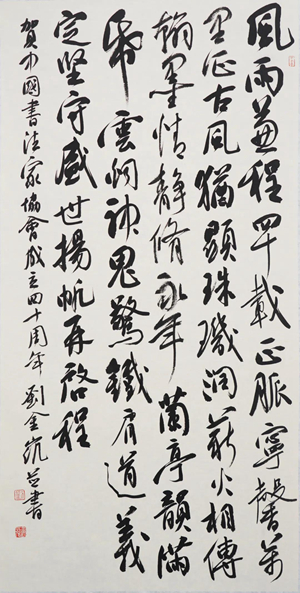 風雨兼程四十載正脈寧馨萬
里征古風猶顯珠璣潤薪火相傳
翰墨情靜脩永年蘭亭韻滿
帋雲烟神鬼驚鐵肩道義
定堅守盛世揚帆再啓程
賀中國書法家協會成立四十周年劉金凱並書